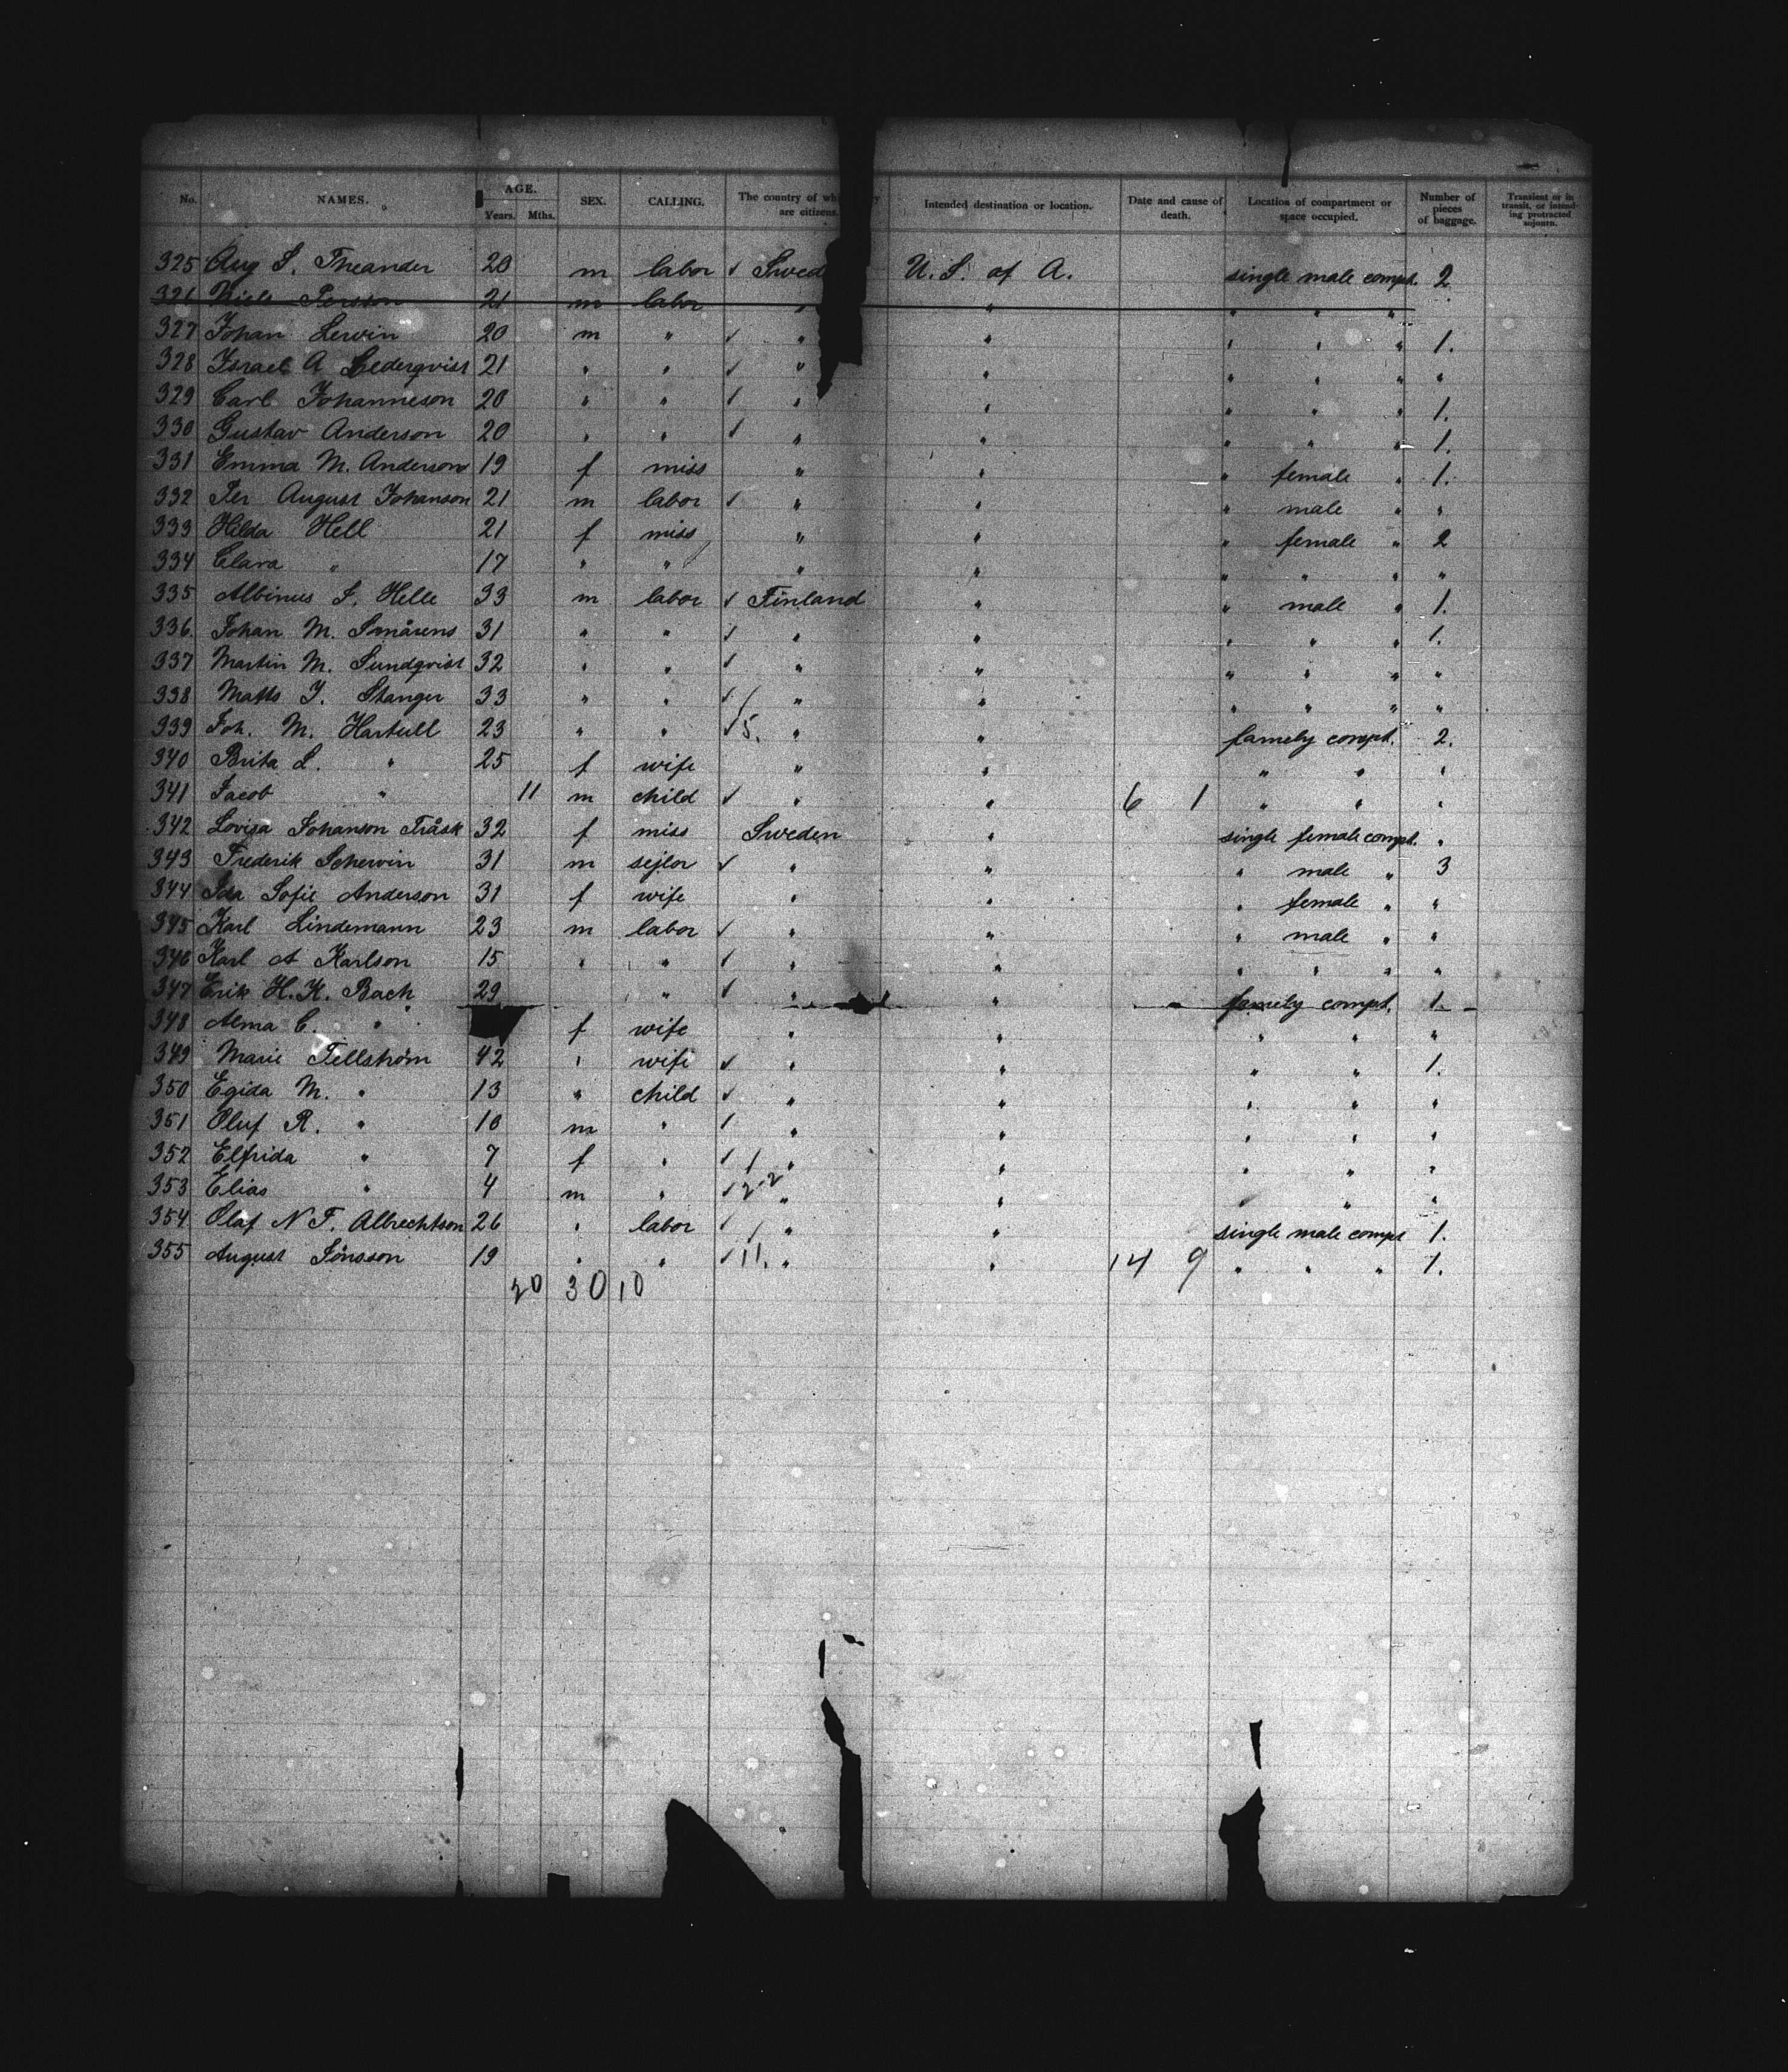 No. NAMES. AGE. Years. Mths. SEX. CALLING. The country of are citizens. Intended destination or location. Date and cause of death. Location of compartment or space occupied. Number of pieces of baggage. Transient or in transit, or intending protracted sojourn.
325 Aug S. Theander 20 m labor ✓ Swed U. S. of A. single male compt. 2
326 Niels Persson 21 m labor " " " " "
327 Johan Lewin 20 m " ✓ " " " " " 1.
328 Israel A 21 " " ✓ " " " " " "
329 Carl Johanneson 20 " " ✓ " " " " " 1.
330 Gustav Anderson 20 " " ✓ " " " " " 1.
331 Emma M. Anderson 19 f miss " " " female " 1.
332 Per August Johanson 21 m labor ✓ " " " male " "
333 Hilda Hell 21 f miss " " " female " 2
334 Clara " 17 " " " " " " " "
335 Albinus S. Helle 33 m labor ✓ Finland " " male " 1.
336. Johan M. Smårens 31 " " ✓ " " " " " 1.
337 Martin M. Sundqvist 32 " " ✓ " " " " " "
338 Matts J. Stanger 33 " " ✓ " " " " " "
339 Joh. M. Hartull 23 " " ✓ 5. " " famely compt. 2.
340 Brita L. " 25 f wife " " " " "
341 Jacob " 11 m child ✓ " " 6 1 " " "
342 Lovisa Johanson Tråsk 32 f miss Sweden " single female compt. "
343 Frederik Scherwin 31 m sejlor ✓ " " " male " 3
344 Ida Sofie Anderson 31 f wife " " " female " "
345 Karl Lindemann 23 m labor ✓ " " " male " "
346 Karl A Karlson 15 " " ✓ " " " " " "
347 Erik H. K. Bach 29 " ✓ " " famely compt. 1.
348 Alma C. " f wife " " " " "
349 Marie Tellström 42 " wife ✓ " " " " 1.
350 Egida M. " 13 " child ✓ " " " " "
351 Oluf R. " 10 m " ✓ " " " " "
352 Elfrida " 7 f " ✓ " " " " "
353 Elias " 4 m " ✓ 2-2 " " " " "
354 Olaf N F. Albrechtson 26 " labor ✓ " " single male compt 1.
355 August Jönsson 19 " " ✓ 11. " " 14 9 " " " 1.
20 30 10